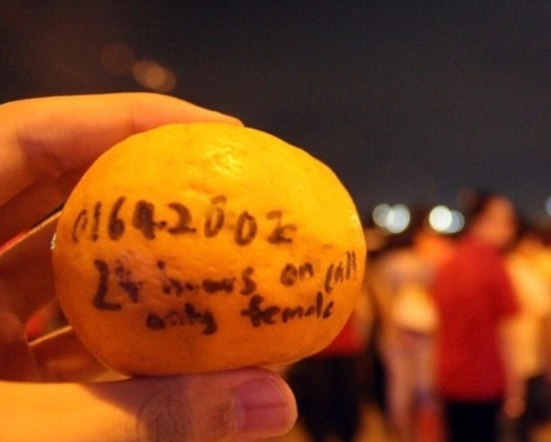 01642002
24 hours on call
only female